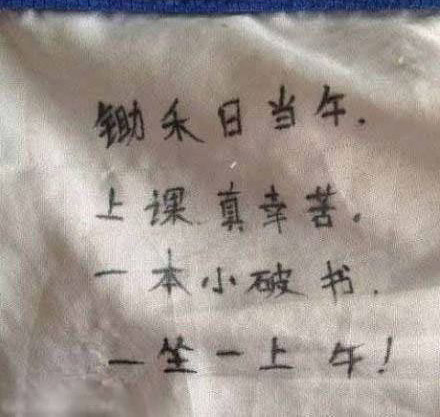 锄禾日当午.
上课真幸苦。
一本小破书.
一坐一上午!